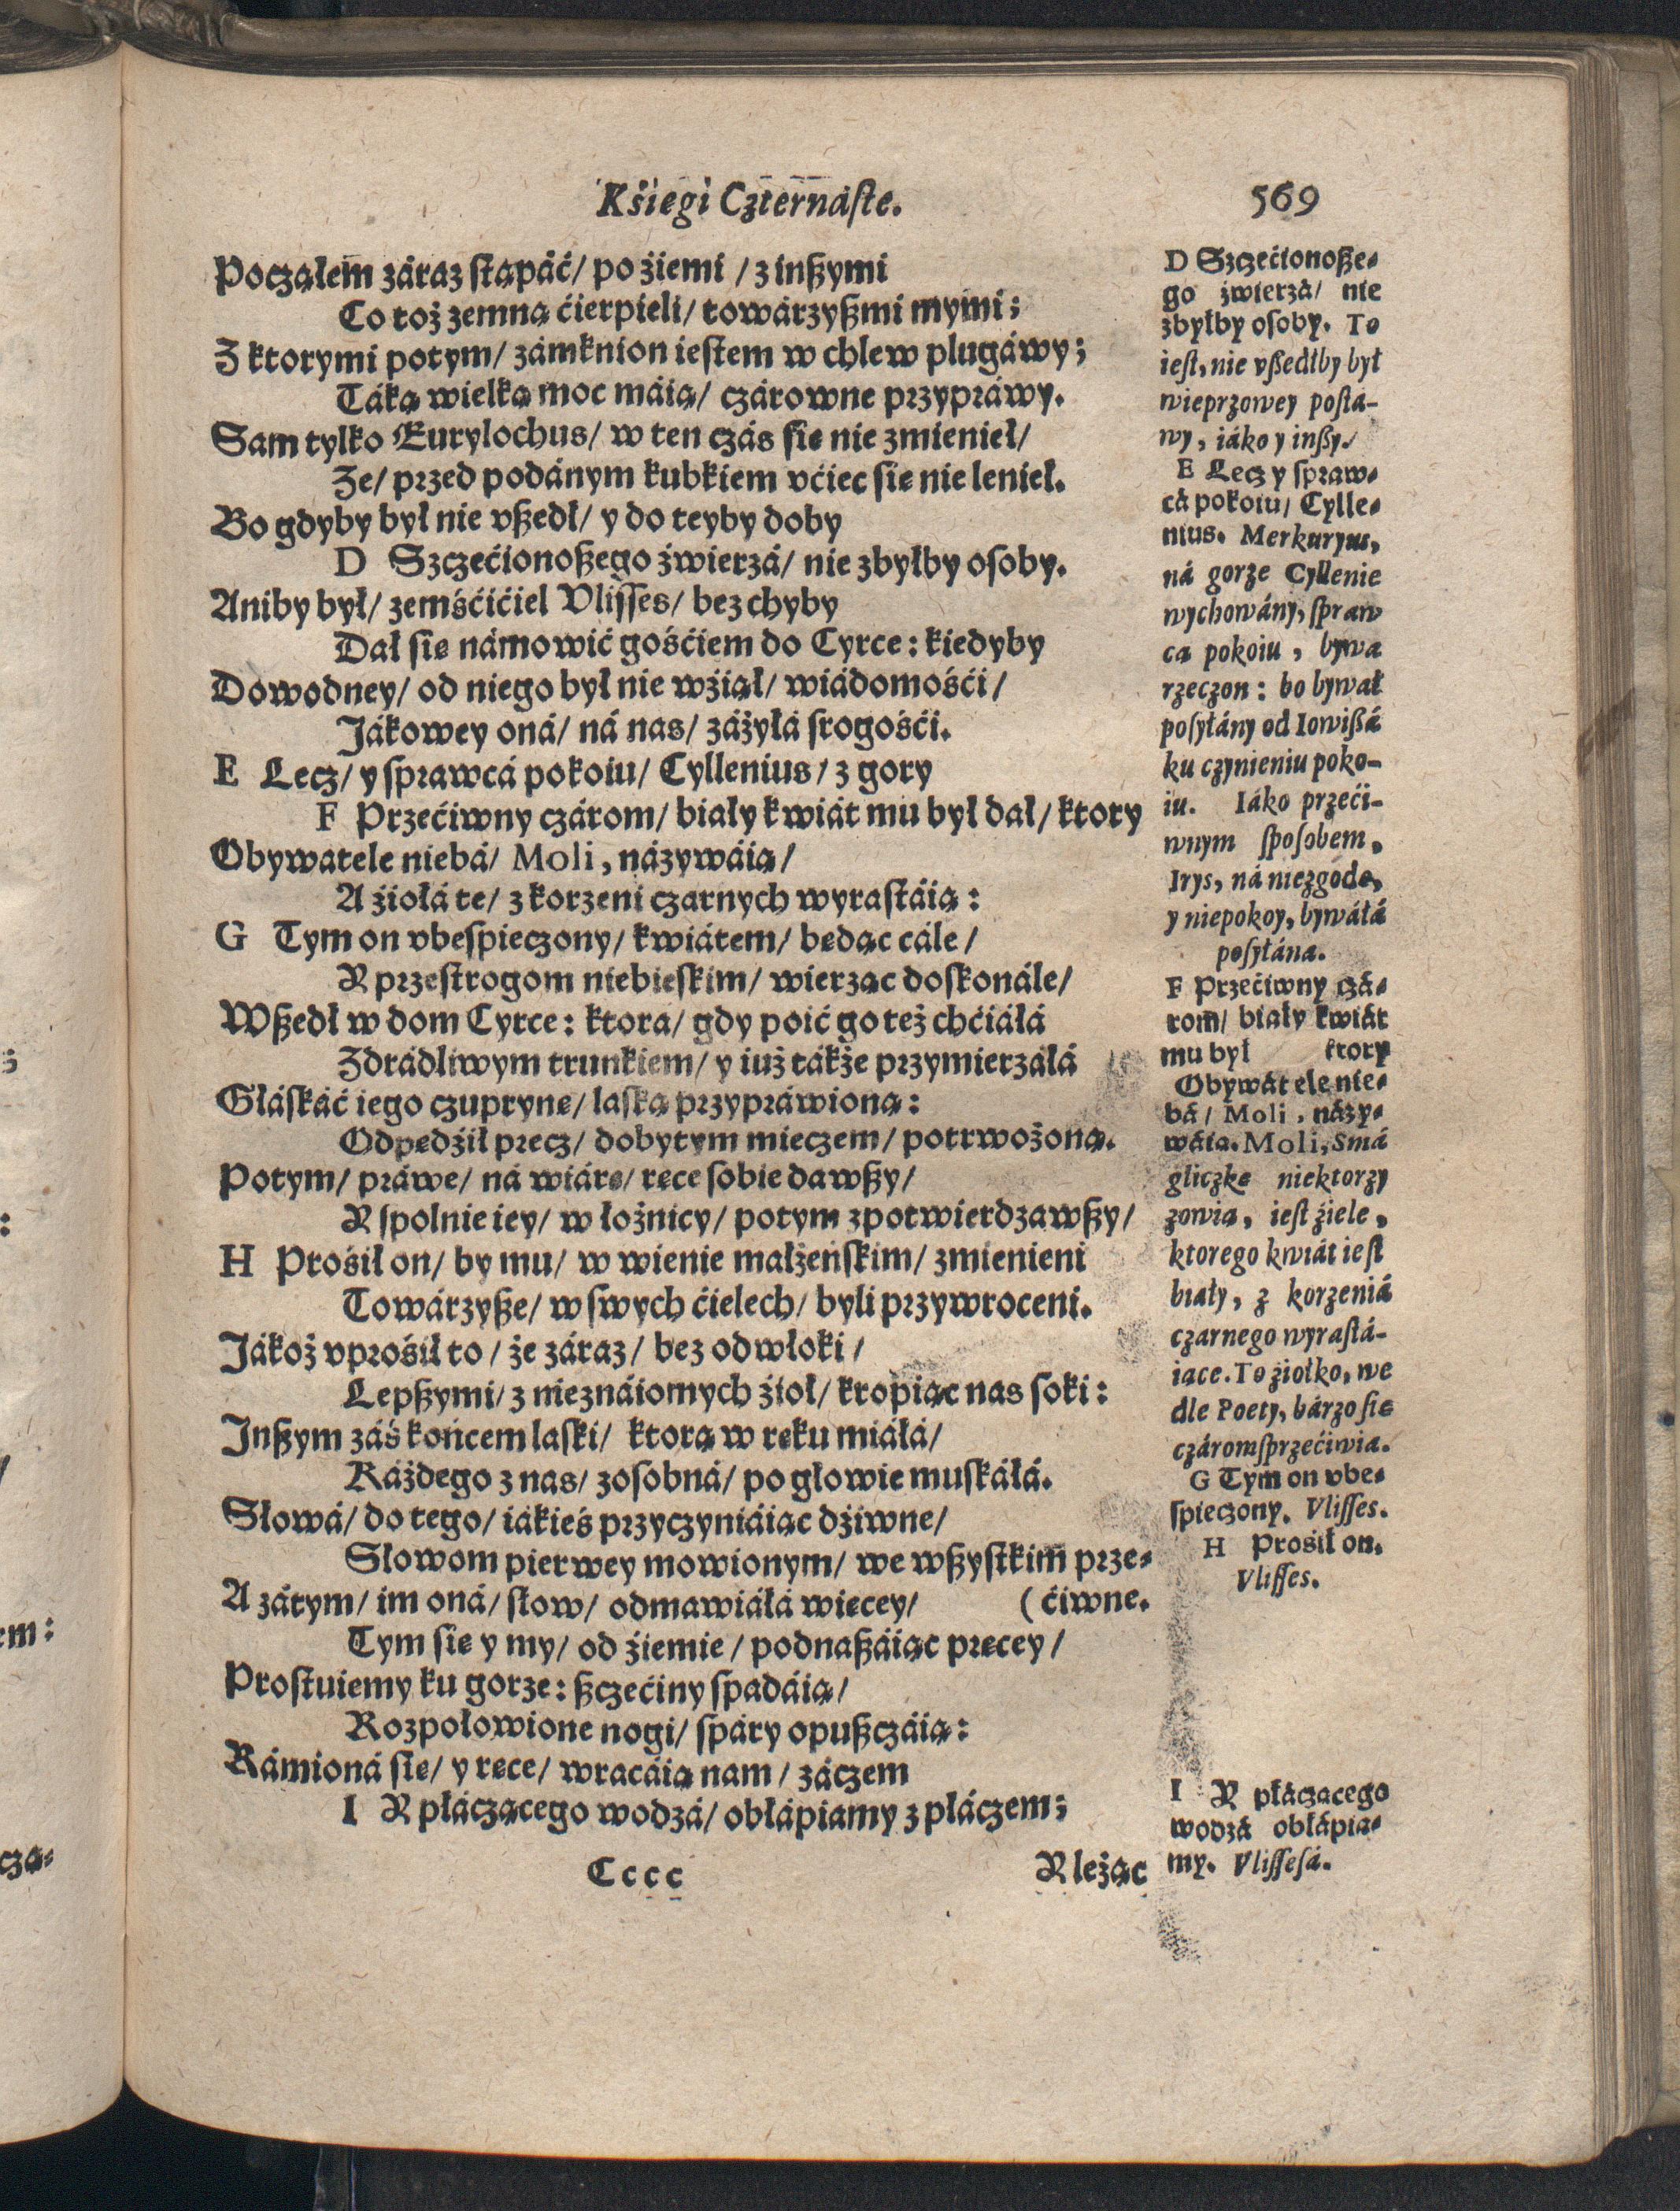 Kśiegi Czternaſte.
569
Począłem záraz ſtąpáć/ po źiemi / z inßymi
Co toż zemną ćierpieli/ towárzyßmi mymi;
Z ktorymi potym/ zámknion ieſtem w chlew plugáwy;
Táką wielką moc máią/ czárowne przypráwy.
Sam tylko Eurylochus/ w ten czás ſie nie zmieniel/
Ze/ przed podánym kubkiem vćiec ſie nie leniel.
Bo gdyby był nie vßedł/ y do teyby doby
D Szczećionoßego źwierzá/ nie zbyłby oſoby.
Aniby był/ zemśćićiel Vliſſes/ bez chyby
Dał ſie námowić gośćiem do Cyrce: kiedyby
Dowodney/ od niego był nie wźiął/ wiádomośći/
Jákowey oná/ ná nas/ záżyłá ſrogośći.
E Lecz/ y ſprawcá pokoiu/ Cyllenius/ z gory
F Przećiwny czárom/ biały kwiát mu był dał/ ktory
Obywatele niebá/ Moli, názywáią/
A źiołá te/ z korzeni czarnych wyraſtáią:
G Tym on vbeſpieczony/ kwiátem/ bedąc cále/
Y przeſtrogom niebieſkim/ wierząc doſkonále/
Wßedł w dom Cyrce: ktora/ gdy poić go też chćiáłá
Zdrádliwym trunkiem/ y iuż tákże przymierzáłá
Głáſkáć iego czupryne/ laſką przypráwioną:
Odpedźił precz/ dobytym mieczem/ potrwożoną.
Potym/ práwe/ ná wiáre/ rece ſobie dawßy/
Y ſpolnie iey/ w łożnicy/ potym zpotwierdzawßy/
H Prośił on/ by mu/ w wienie małżeńſkim/ zmienieni
Towárzyße/ w ſwych ćielech/ byli przywroceni.
Jákoż vprośił to/ że záraz/ bez odwłoki/
Lepßymi/ z nieznáiomych źioł/ kropiąc nas ſoki:
Inßym záś końcem laſki/ ktorą w reku miáłá/
Káżdego z nas/ zoſobná/ po głowie muſkáłá.
Słowá/ do tego/ iákieś przyczyniáiąc dźiwne/
Słowom pierwey mowionym/ we wßyſtkim prze-
A zátym/ im oná/ słow/ odmawiáłá wiecey/ (ćiwne.
Tym ſie y my/ od źiemie/ podnaßáiąc precey/
Proſtuiemy ku gorze: ßczećiny ſpadáią/
Rozpołowione nogi/ ſpáry opußczáią:
Rámioná ſie/ y rece/ wracáią nam/ záczem
I Y płáczącego wodzá/ obłápiamy z płáczem;
Cccc
Y leżąc
D Szczećionoße-
go źwierzá/ nie
zbyłby oſoby. To
ieſt, nie vßedłby był
wieprzowey poſta-
wy, iáko y inßy.
E Lecz y ſpraw-
cá pokoiu/ Cylle-
nius. Merkuryus,
ná gorze Cyllenie
wychowány, ſpraw
ca pokoiu, bywa
rzeczon: bo bywał
poſyłány od Iowißá
ku czynieniu poko-
iu. Iáko przeći-
wnym ſpoſobem,
Irys, ná niezgode,
y niepokoy, bywáłá
poſyłána.
F Przećiwny czá-
rom/ biały kwiát
mu był ktory
Obywátele nie-
bá/ Moli, názy-
wáia. Moli, Smá
gliczke niektorzy
zowia, ieſt źiele,
ktorego kwiát ieſt
biały, z korzeniá
czarnego wyraſtá-
iace. To źiołko, we
dle Poety, bárzo ſie
czárom ſprzećiwia.
G Tym on vbe-
ſpieczony. Vliſſes.
H Prośił on.
Vliſſes.
I Y płáczacego
wodzá obłápia-
my. Vliſſeſá.